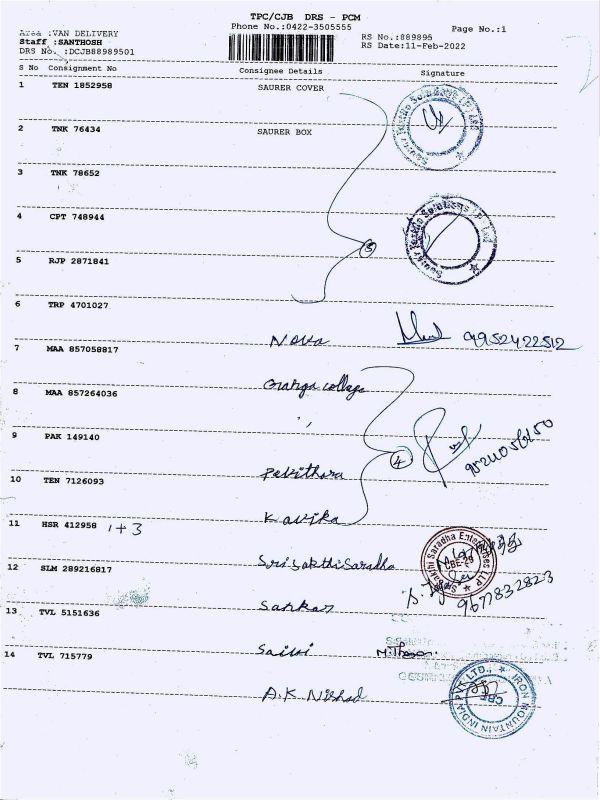 TPC/CJB DRS - PCM
Phone No.:0422-3505555
Page No.:1
Area :VAN DELIVERY
Staff :SANTHOSH
DRS No. :DCJB88989501
RS No.:889895
RS Date:11-Feb-2022
S No Consignment No Consignee Details Signature
1 TEN 1852958 SAURER COVER
2 TNK 76434 SAURER BOX
3 TNK 78652
4 CPT 748944
5 RJP 2871841
5
6 TRP 4701027
Nova 9952422512
7 MAA 857058817
college
8 MAA 857264036
9 PAK 149140
4
Pavithara
10 TEN 7126093
Kavika
11 HSR 412958 1+3
Sri Sakthi Saradha
12 SLM 289216817
9677832823
Sankar
13 TVL 5151636
14 TVL 715779
A.K Nishad
IRON MOUNTAIN INDIA PVT LTD.